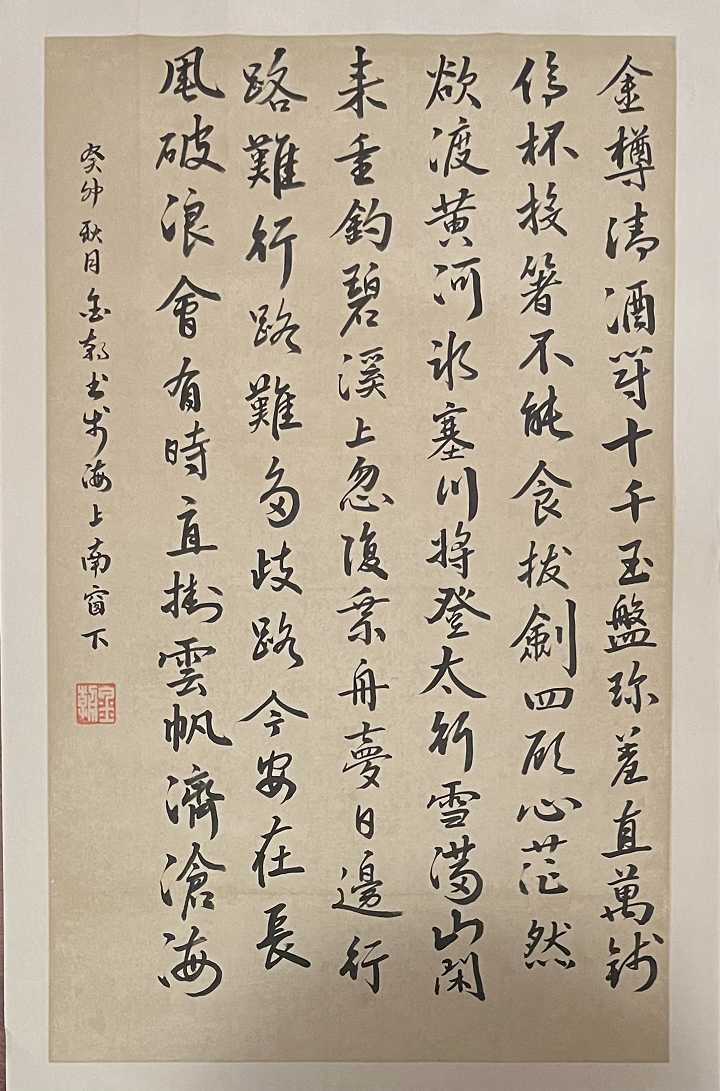 金樽清酒鬥十千玉盤珎羞直萬錢
停杯投箸不能食拔劍四顧心茫然
欲渡黃河冰塞川將登太行雪滿山閑
来垂釣碧溪上忽復乘舟夢日邊行
路難行路難多歧路今安在長
風破浪會有時直掛雲帆濟滄海
癸卯秋月金書於海上南窗下